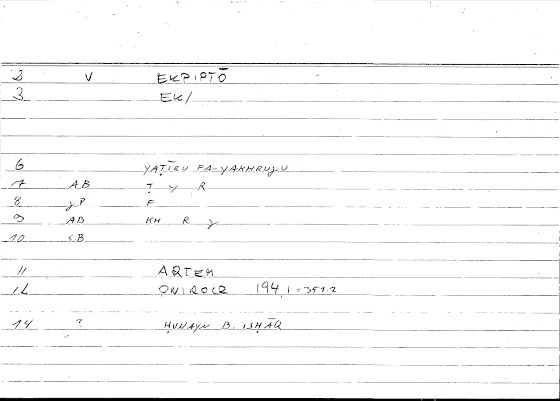 2 V EKPIPTŌ
3 EK/
6 YAṬĪRU FA-YAKHRUJU
7 AB Ṭ Y R
8 JP F
9 AB KH R J
10 CB
11 ARTEM
12 ONIROCR 194,1=351.2
14 ? ḤUNAYN B. ISḤĀQ